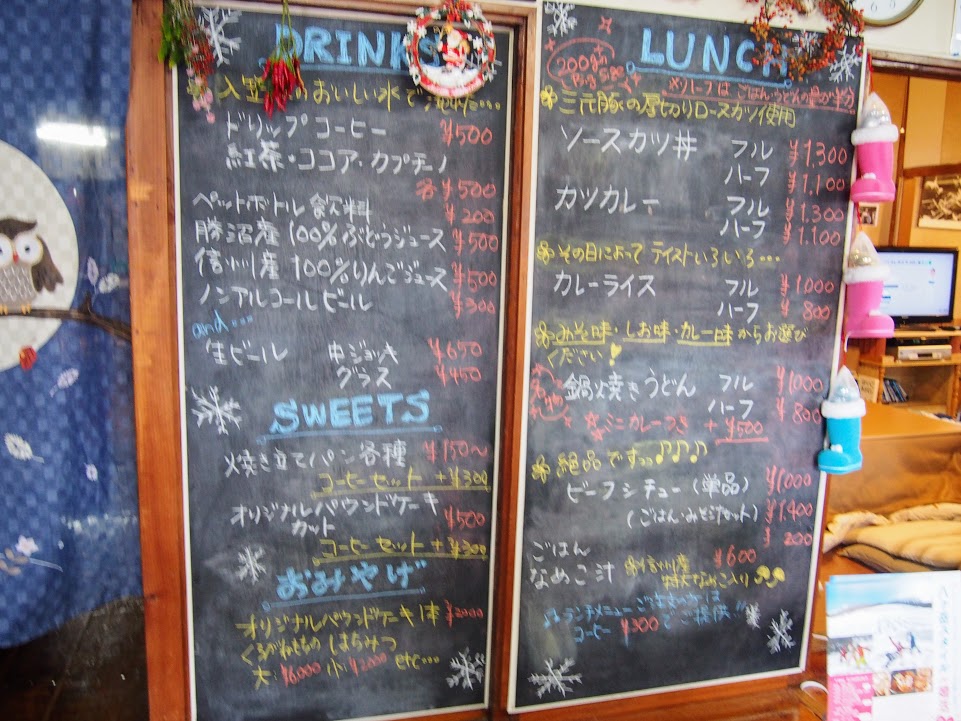 DRINKS
入笠 のおいしい水で
ドリップコーヒー ¥500
紅茶・ココア・カプチーノ
各¥500
ペットボトル飲料 ¥200
勝沼産 100%ぶどうジュース ¥500
信州産 100%りんごジュース ¥500
ノンアルコールビール ¥300
and...
生ビール 中ジョッキ ¥650
グラス ¥450
SWEETS
焼き立てパン各種 ¥150〜
コーヒーセット +¥300
オリジナルパウンドケーキ
カット ¥500
コーヒーセット +¥300
おみやげ
オリジナルパウンドケーキ1本 ¥2000
はちみつ
大:¥6000 小:¥2000 etc...
LUNCH
※ハーフは ごはん・うどんの量が半分
三元豚の厚切りロースカツ使用
ソースカツ丼 フル ¥1,300
ハーフ ¥1,100
カツカレー フル ¥1,300
ハーフ ¥1,100
その日によって テイストいろいろ...
カレーライス フル ¥1000
ハーフ ¥800
みそ味・しお味・カレー味からお選び
ください!
鍋焼きうどん フル ¥1000
ハーフ ¥800
ミニカレーつき +¥500
絶品ですっ♪♪♪
ビーフシチュー(単品) ¥1000
(ごはん・みそ汁セット) ¥1,400
ごはん ¥200
なめこ汁 信州産 ¥600
特大なめこ入り
ランチメニューご注文の方は
コーヒー ¥300でご提供!!